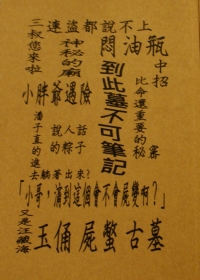 連盜都說不上
三叔您來啦
神秘的廟
悶油瓶
中招
到此墓不可筆記
比命還重要的秘
小胖爺遇險
潘子直的進去
躺著出來?
「小哥,滴到這個會不會屍變啊?」
又是汪藏海
玉俑屍蟞古墓